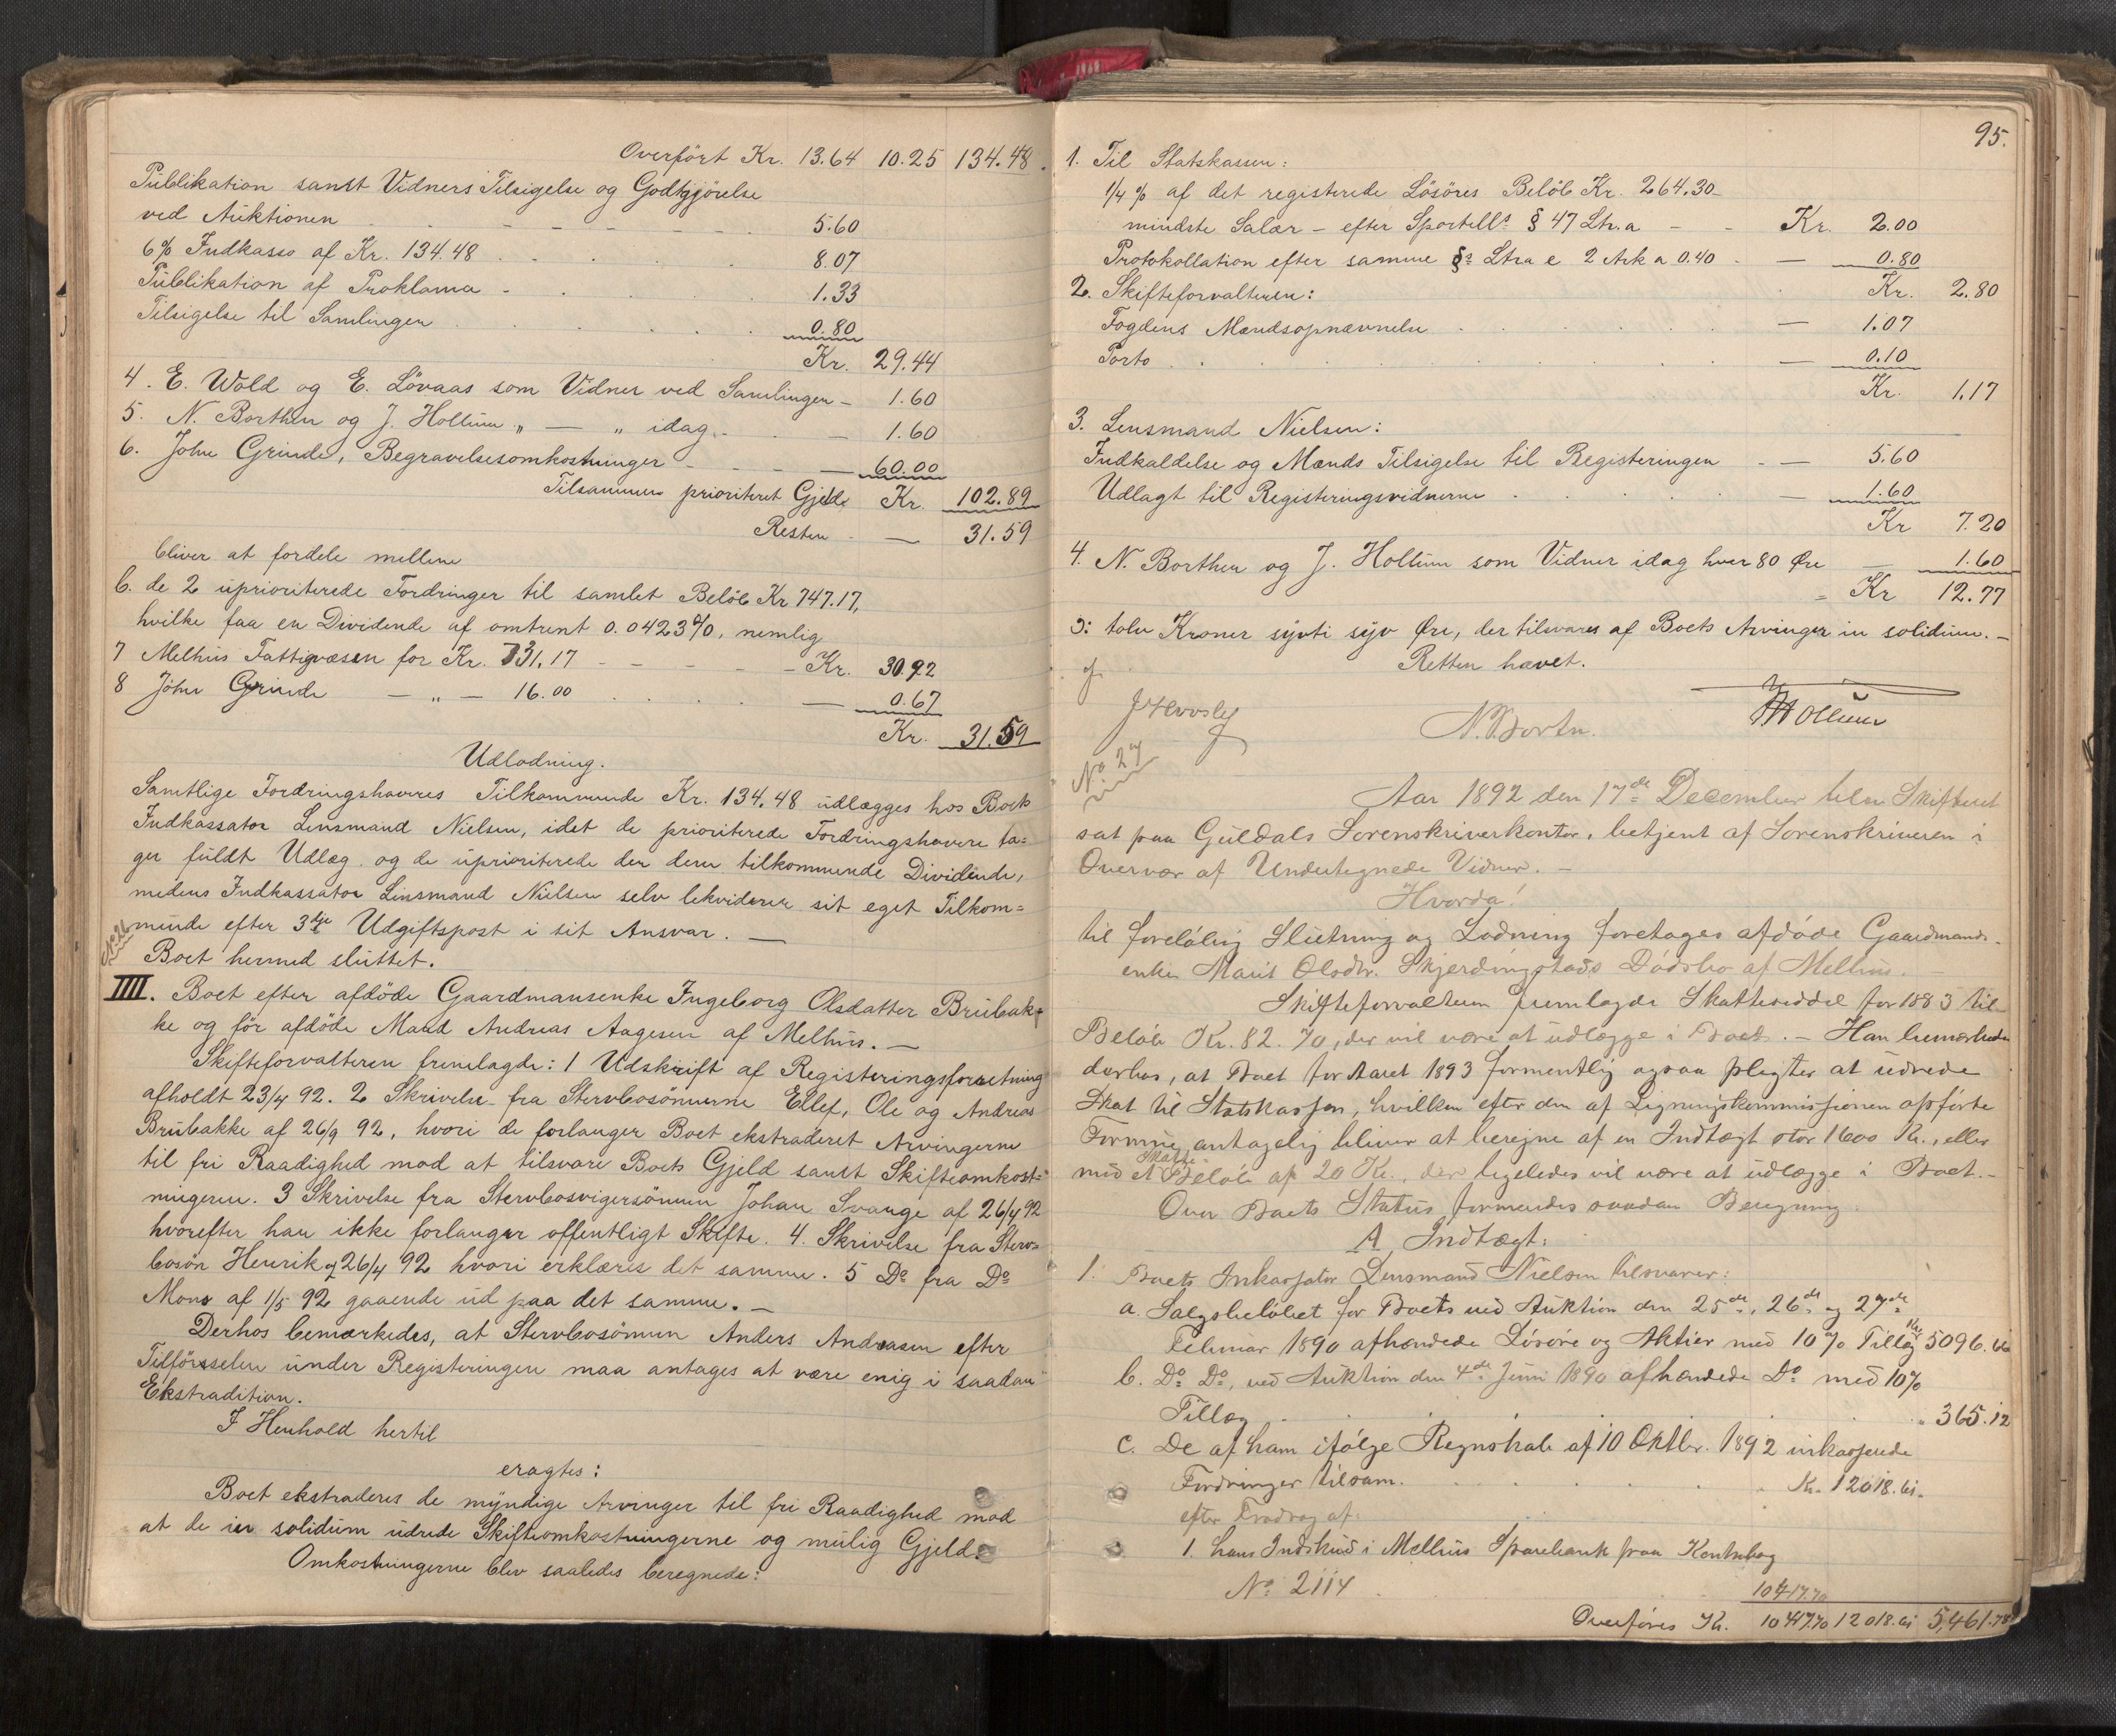 Overført Kr. 13.64 10.25 134.48.
Publikation samt Vidners Tilsigelse og Godtgjørelse
ved Auktionen - - - - - - 5.60
6% Indkasso af Kr. 134.48 . . . . . 8.07
Publikation af Proklama - . . . . 1.33
Tilsigelse til Samlingen . . . . . 0.80
Kr. 29.44
4. E. Wold og E. Løvaas som Vidner ved Samlingen - 1.60
5. N. Borthen og J. Hollum „ — „ idag. - — 1.60
6. John Grinde, Begravelsesomkostninger - - - — 60.00
Tilsammen prioriteret Gjeld Kr. 102.89
Resten - — 31.59
bliver at fordele mellem
b. de 2 uprioriterede Fordringer til samlet Beløb Kr 747.17,
hvilke faa en Dividende af omtrent 0.0423%, nemlig
7 Melhus Fattigvæsen for Kr. 731.17 - - - - - Kr. 30.92
8 John Grinde — „ — 16.00 . . . . — 0.67
Kr. 31.59
Udlodning.
Samtlige Fordringshaveres Tilkommende Kr. 134.48 udlægges hos Boets
Indkassator Lensmand Nielsen, idet de prioriterede Fordringshavere ta=
ger fuldt Udlæg og de uprioriterede den dem tilkommende Dividende,
medens Indkassator Lensmand Nielsen selv lekviderer sit eget Tilkom=
mende efter 3die Udgiftspost i sit Ansvar. —
Boet hermed sluttet.
No 26
IIII. Boet efter afdøde Gaardmansenke Ingeborg Olsdatter Brubak=
ke og før afdøde Mand Andreas Aagesen af Melhus. —
Skifteforvalteren fremlagde: 1 Udskrift af Registeringsforretning
afholdt 23/4 92. 2 Skrivelse fra Stervbosønnerne Ellef, Ole og Andreas
Brubakke af 26/9 92, hvori de forlanger Boet ekstraderet Arvingerne
til fri Raadighed mod at tilsvare Boets Gjeld samt Skifteomkost=
ningerne. 3 Skrivelse fra Stervbosvigersønnen Johan Svange af 26/4 92
hvorefter han ikke forlanger offentligt Skifte. 4. Skrivelse fra Sterv=
bosøn Henrik af 26/4 92 hvori erklæres det samme. 5 Do fra Do
Mons af 1/5 92 gaaende ud paa det samme. —
Derhos bemærkedes, at Stervbosønnen Anders Andreasen efter
Tilførselen under Registeringen maa antages at være enig i saadan
Ekstradition.
I Henhold hertil
eragtes:
Boet ekstraderes de myndige Arvinger til fri Raadighed mod
at de in solidum udrede Skifteomkostningerne og mulig Gjeld.
Omkostningerne blev saaledes beregnede:
95.
1. Til Statskassen:
1/4 % af det registerede Løsøres Beløb Kr. 264.30
mindste Salær - efter Sportells § 47 Ltr. a - - Kr. 2.00
Protokollation efter samme § Ltra e 2 Ark a 0.40 - — 0.80
Kr. 2.80
2. Skifteforvalteren:
Fogdens Mændsopnævnelse . . . . — 1.07
Porto . . . . . . . — 0.10
Kr. 1.17
3. Lensmand Nielsen:
Indkaldelse og Mænds Tilsigelse til Registeringen - — 5.60
Udlagt til Registeringsvidnerne . . . . — 1.60
Kr 7.20
4. N. Borthen og J. Hollum som Vidner idag hver 80 Øre — 1.60
= Kr 12.77
ɔ: tolv Kroner sytti syv Øre, der tilsvares af Boets Arvinger in solidum. —
Retten hævet.
N. Borthn. JHollum
No 27
Aar 1892 den 17de December blev Skifteret
sat paa Guldals Sorenskriverkontor, betjent af Sorenskriveren i
Overvær af Undertegnede Vidner. —
Hvorda!
til foreløbig Slutning og Lodning foretoges afdøde Gaardmands-
enke Marit Olsdtr. Skjerdingstads Dødsbo af Melhus.
Skifteforvalteren fremlagde Skatteseddel for 1883 til
Beløb Kr. 82.70, der vil være at udlægge i Boet. — Han bemærkede
derhos, at Boet for Aaret 1893 formentlig ogsaa pligter at udrede
Skat til Statskassen, hvilken efter den af Ligningskommissionen opførte
Formue antagelig bliver at beregne af en Indtægt stor 1600 Kr., eller
med et Skatte Beløb af 20 Kr., der ligeledes vil være at udlægge i Boet. —
Over Boets Status formeredes saadan Beregning:
A. Indtægt:
1. Boets Inkassator Lensmand Nielsen tilsvarer:
a. Salgsbeløbet for Boets ved Auktion den 25de, 26de og 27de
Februar 1890 afhændede Løsøre og Aktier med 10% Tillæg Kr. 5096.66
b. Do Do, ved Auktion den 4de Juni 1890 afhændede Do med 10%
Tillæg . . . . . . . " 365.12
c. De af ham ifølge Regnskab af 10 Oktbr. 1892 inkasserede
Fordringer tilsam. . . . . . Kr. 12018.61.
efter Fradrag af:
1. hans Indskud i Melhus Sparebank paa Kontrabog
No 2114 . 10417.70
Overføres Kr. 10417.70 12018.61 5,461.78